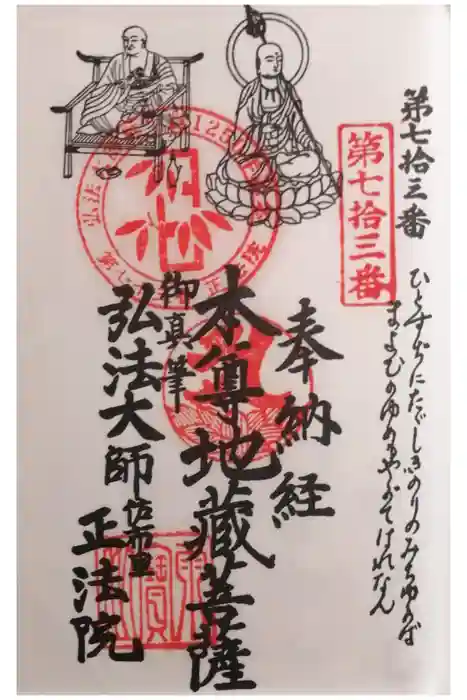 第七拾三番
ひとすぢにたゞしきのりのみちゆかば
まよひのゆめもやがてはれなん
第七拾三番
奉納経
本尊地蔵菩薩
御真筆
弘法大師
佐布里
正法院